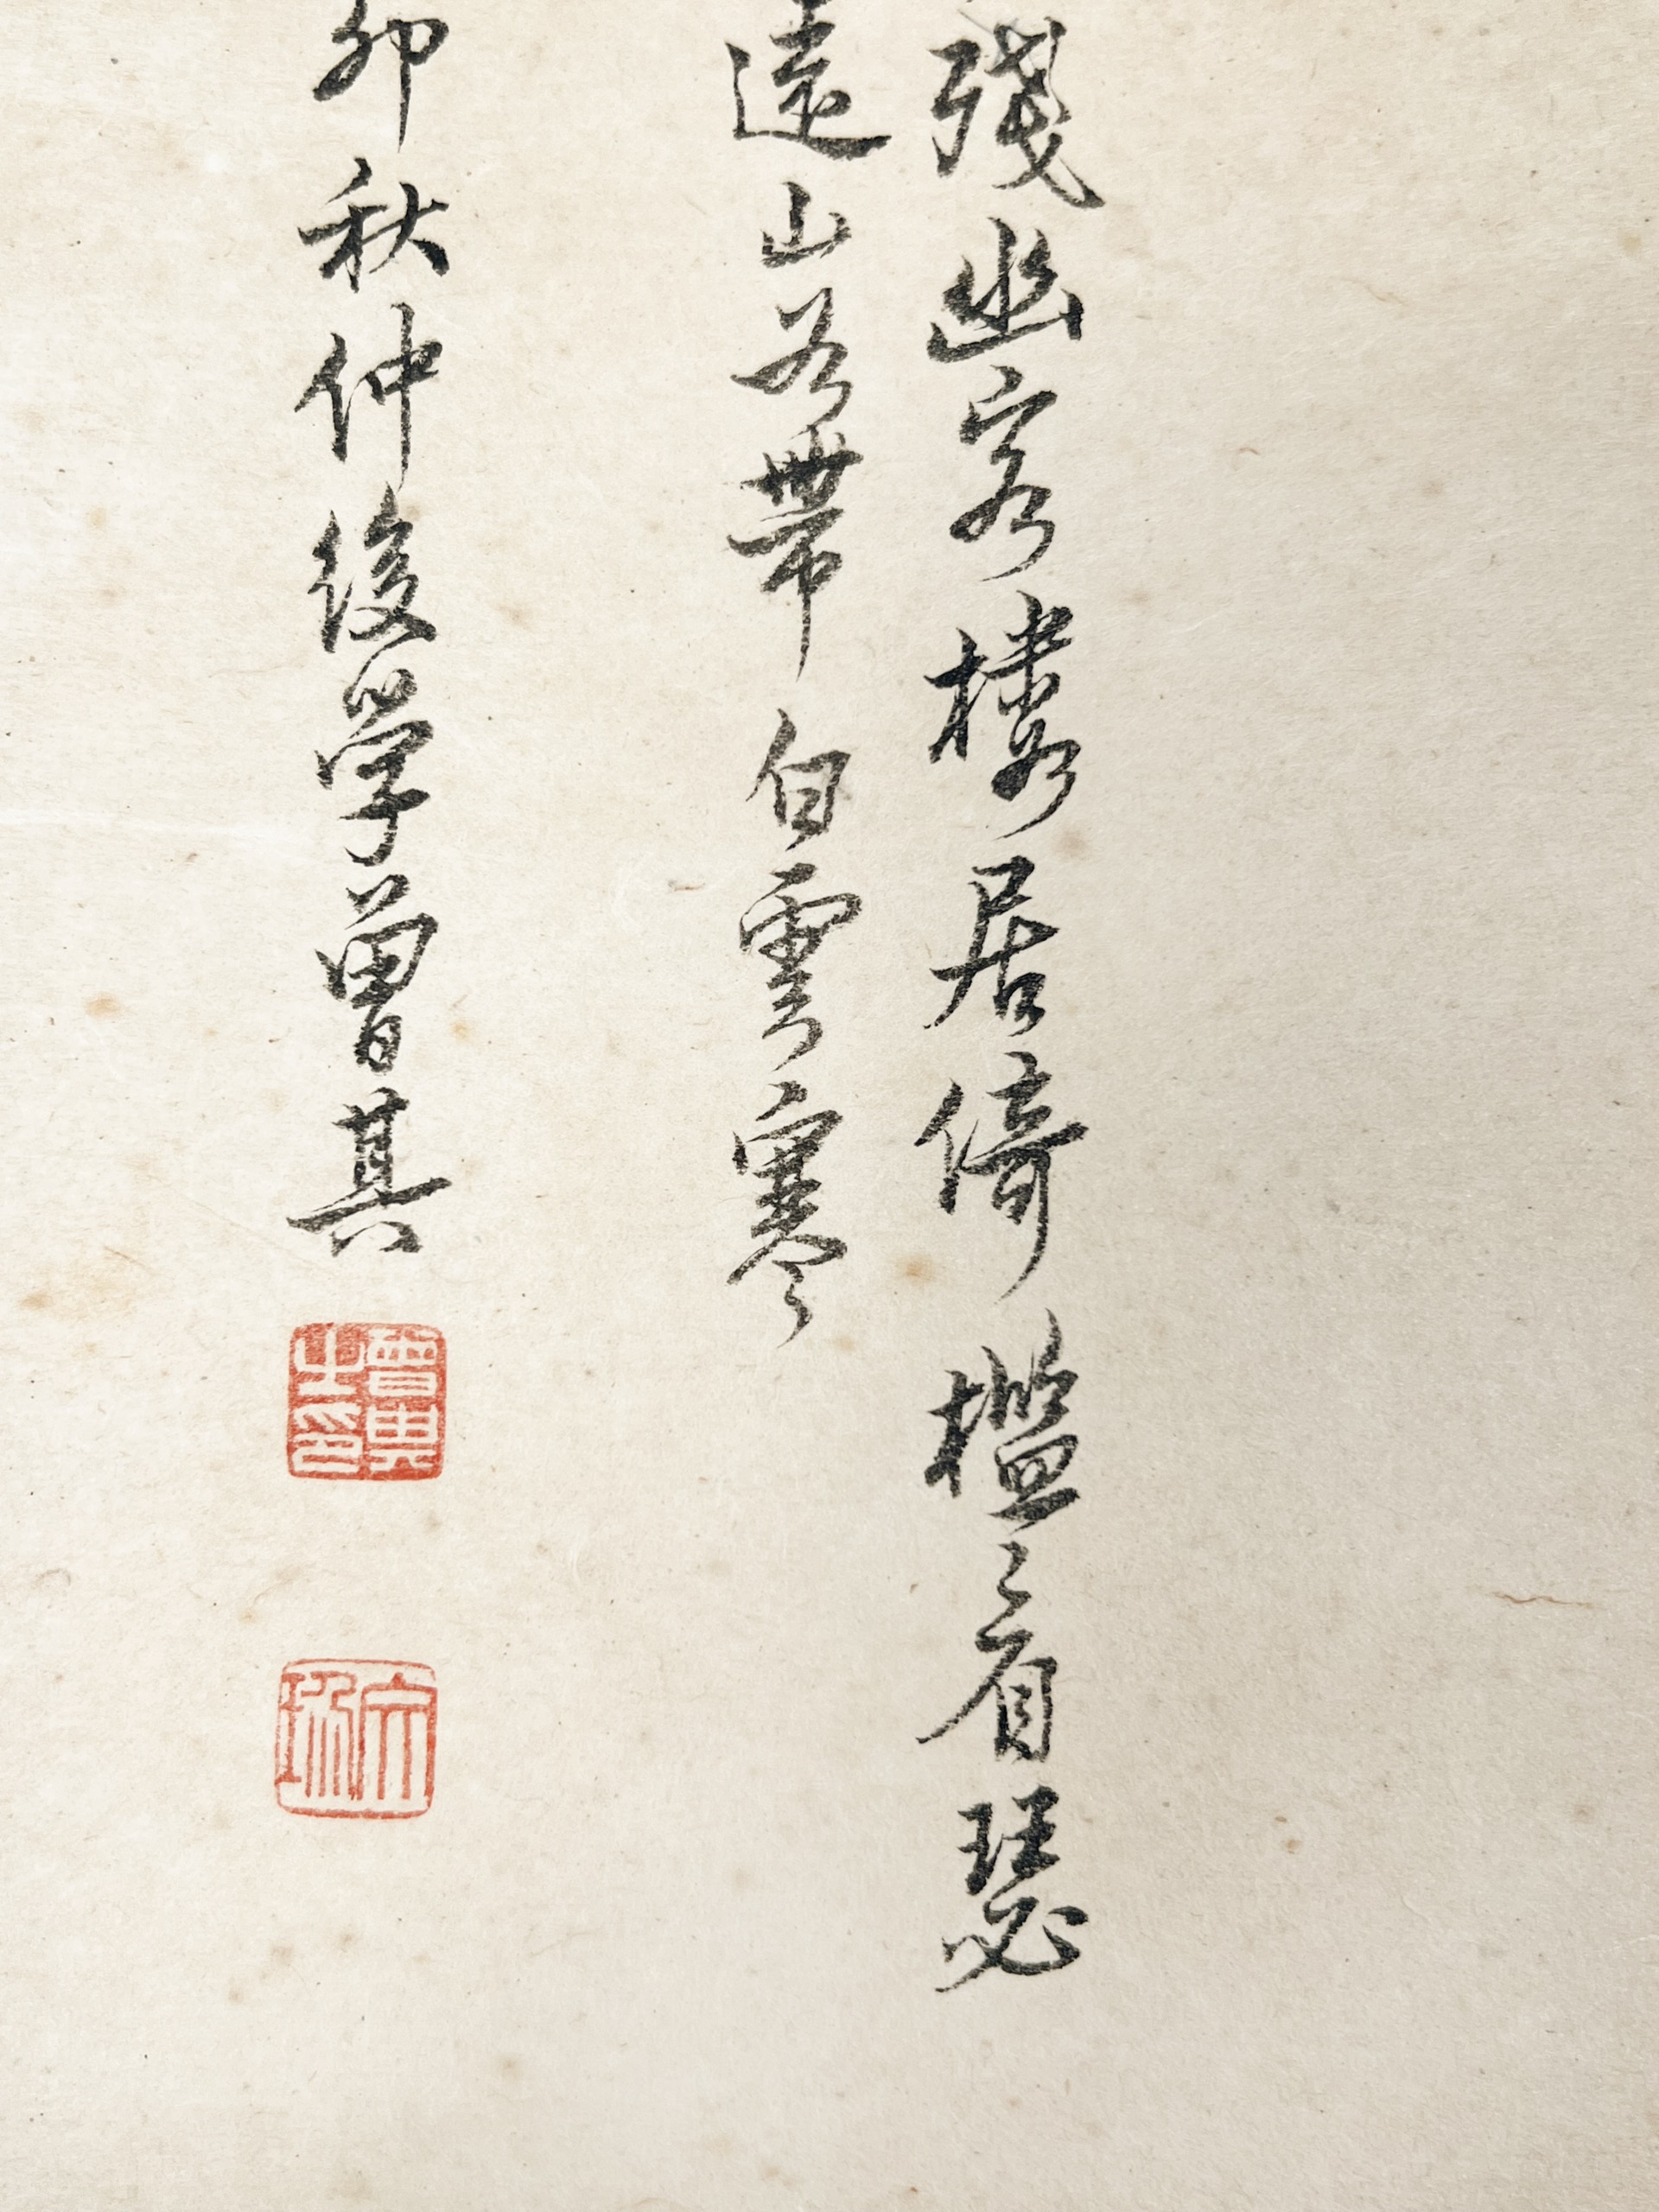 殘幽客樓居倚檻看琴瑟
遠山若帶白雲寒
卯秋仲後學曾其
曾其之印